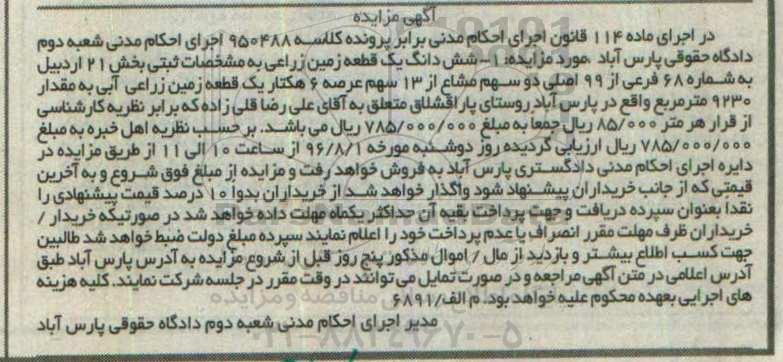 آگهی مزایده
در اجرای ماده ۱۱۴ قانون اجرای احکام مدنی برابر پرونده کلاسه ۹۵۰۴۸۸ اجرای احکام مدنی شعبه دوم
دادگاه حقوقی پارس آباد ،مورد مزایده: ۱- شش دانگ یک قطعه زمین زراعی به مشخصات ثبتی بخش ۲۱ اردبیل
به شماره ۶۸ فرعی از ۹۹ اصلی دو سهم مشاع از ۱۳ سهم عرصه ۶ هکتار یک قطعه زمین زراعی آبی به مقدار
۹۲۳۰ مترمربع واقع در پارس آباد روستای پاراقشلاق متعلق به آقای علی رضا قلی زاده که برابر نظریه کارشناسی
از قرار هر متر ۸۵/۰۰۰ ریال جمعا به مبلغ ۷۸۵/۰۰۰/۰۰۰ ریال می باشد. بر حسب نظریه اهل خبره به مبلغ
۷۸۵/۰۰۰/۰۰۰ ریال ارزیابی گردیده روز دوشنبه مورخه ۹۶/۸/۱ از ساعت ۱۰ الی ۱۱ از طریق مزایده در
دایره اجرای احکام مدنی دادگستری پارس آباد به فروش خواهد رفت و مزایده از مبلغ فوق شروع و به آخرین
قیمتی که از جانب خریداران پیشنهاد شود واگذار خواهد شد از خریداران بدوا ۱۰ درصد قیمت پیشنهادی را
نقدا بعنوان سپرده دریافت و جهت پرداخت بقیه آن حداکثر یکماه مهلت داده خواهد شد در صورتیکه خریدار /
خریداران ظرف مهلت مقرر انصراف یا عدم پرداخت خود را اعلام نمایند سپرده مبلغ دولت ضبط خواهد شد طالبین
جهت کسب اطلاع بیشتر و بازدید از مال / اموال مذکور پنج روز قبل از شروع مزایده به آدرس پارس آباد طبق
آدرس اعلامی در متن آگهی مراجعه و در صورت تمایل می توانند در وقت مقرر در جلسه شرکت نمایند. کلیه هزینه
های اجرایی بعهده محکوم علیه خواهد بود. م الف/۶۸۹۱
مدیر اجرای احکام مدنی شعبه دوم دادگاه حقوقی پارس آباد
۰۲۱-۸۸۳۴۹۶۷۰-۵